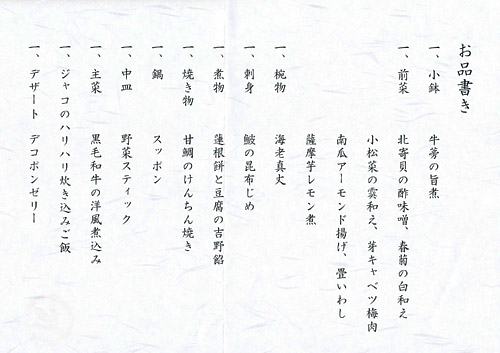 お品書き
一、小鉢 牛蒡の旨煮
一、前菜 北寄貝の酢味噌、春菊の白和え
小松菜の霙和え、芽キャベツ梅肉
南瓜アーモンド揚げ、畳いわし
薩摩芋レモン煮
一、椀物 海老真丈
一、刺身 鮍の昆布じめ
一、煮物 蓮根餅と豆腐の吉野餡
一、焼き物 甘鯛のけんちん焼き
一、鍋 スッポン
一、中皿 野菜スティック
一、主菜 黒毛和牛の洋風煮込み
一、ジャコのハリハリ炊き込みご飯
一、デザート デコポンゼリー